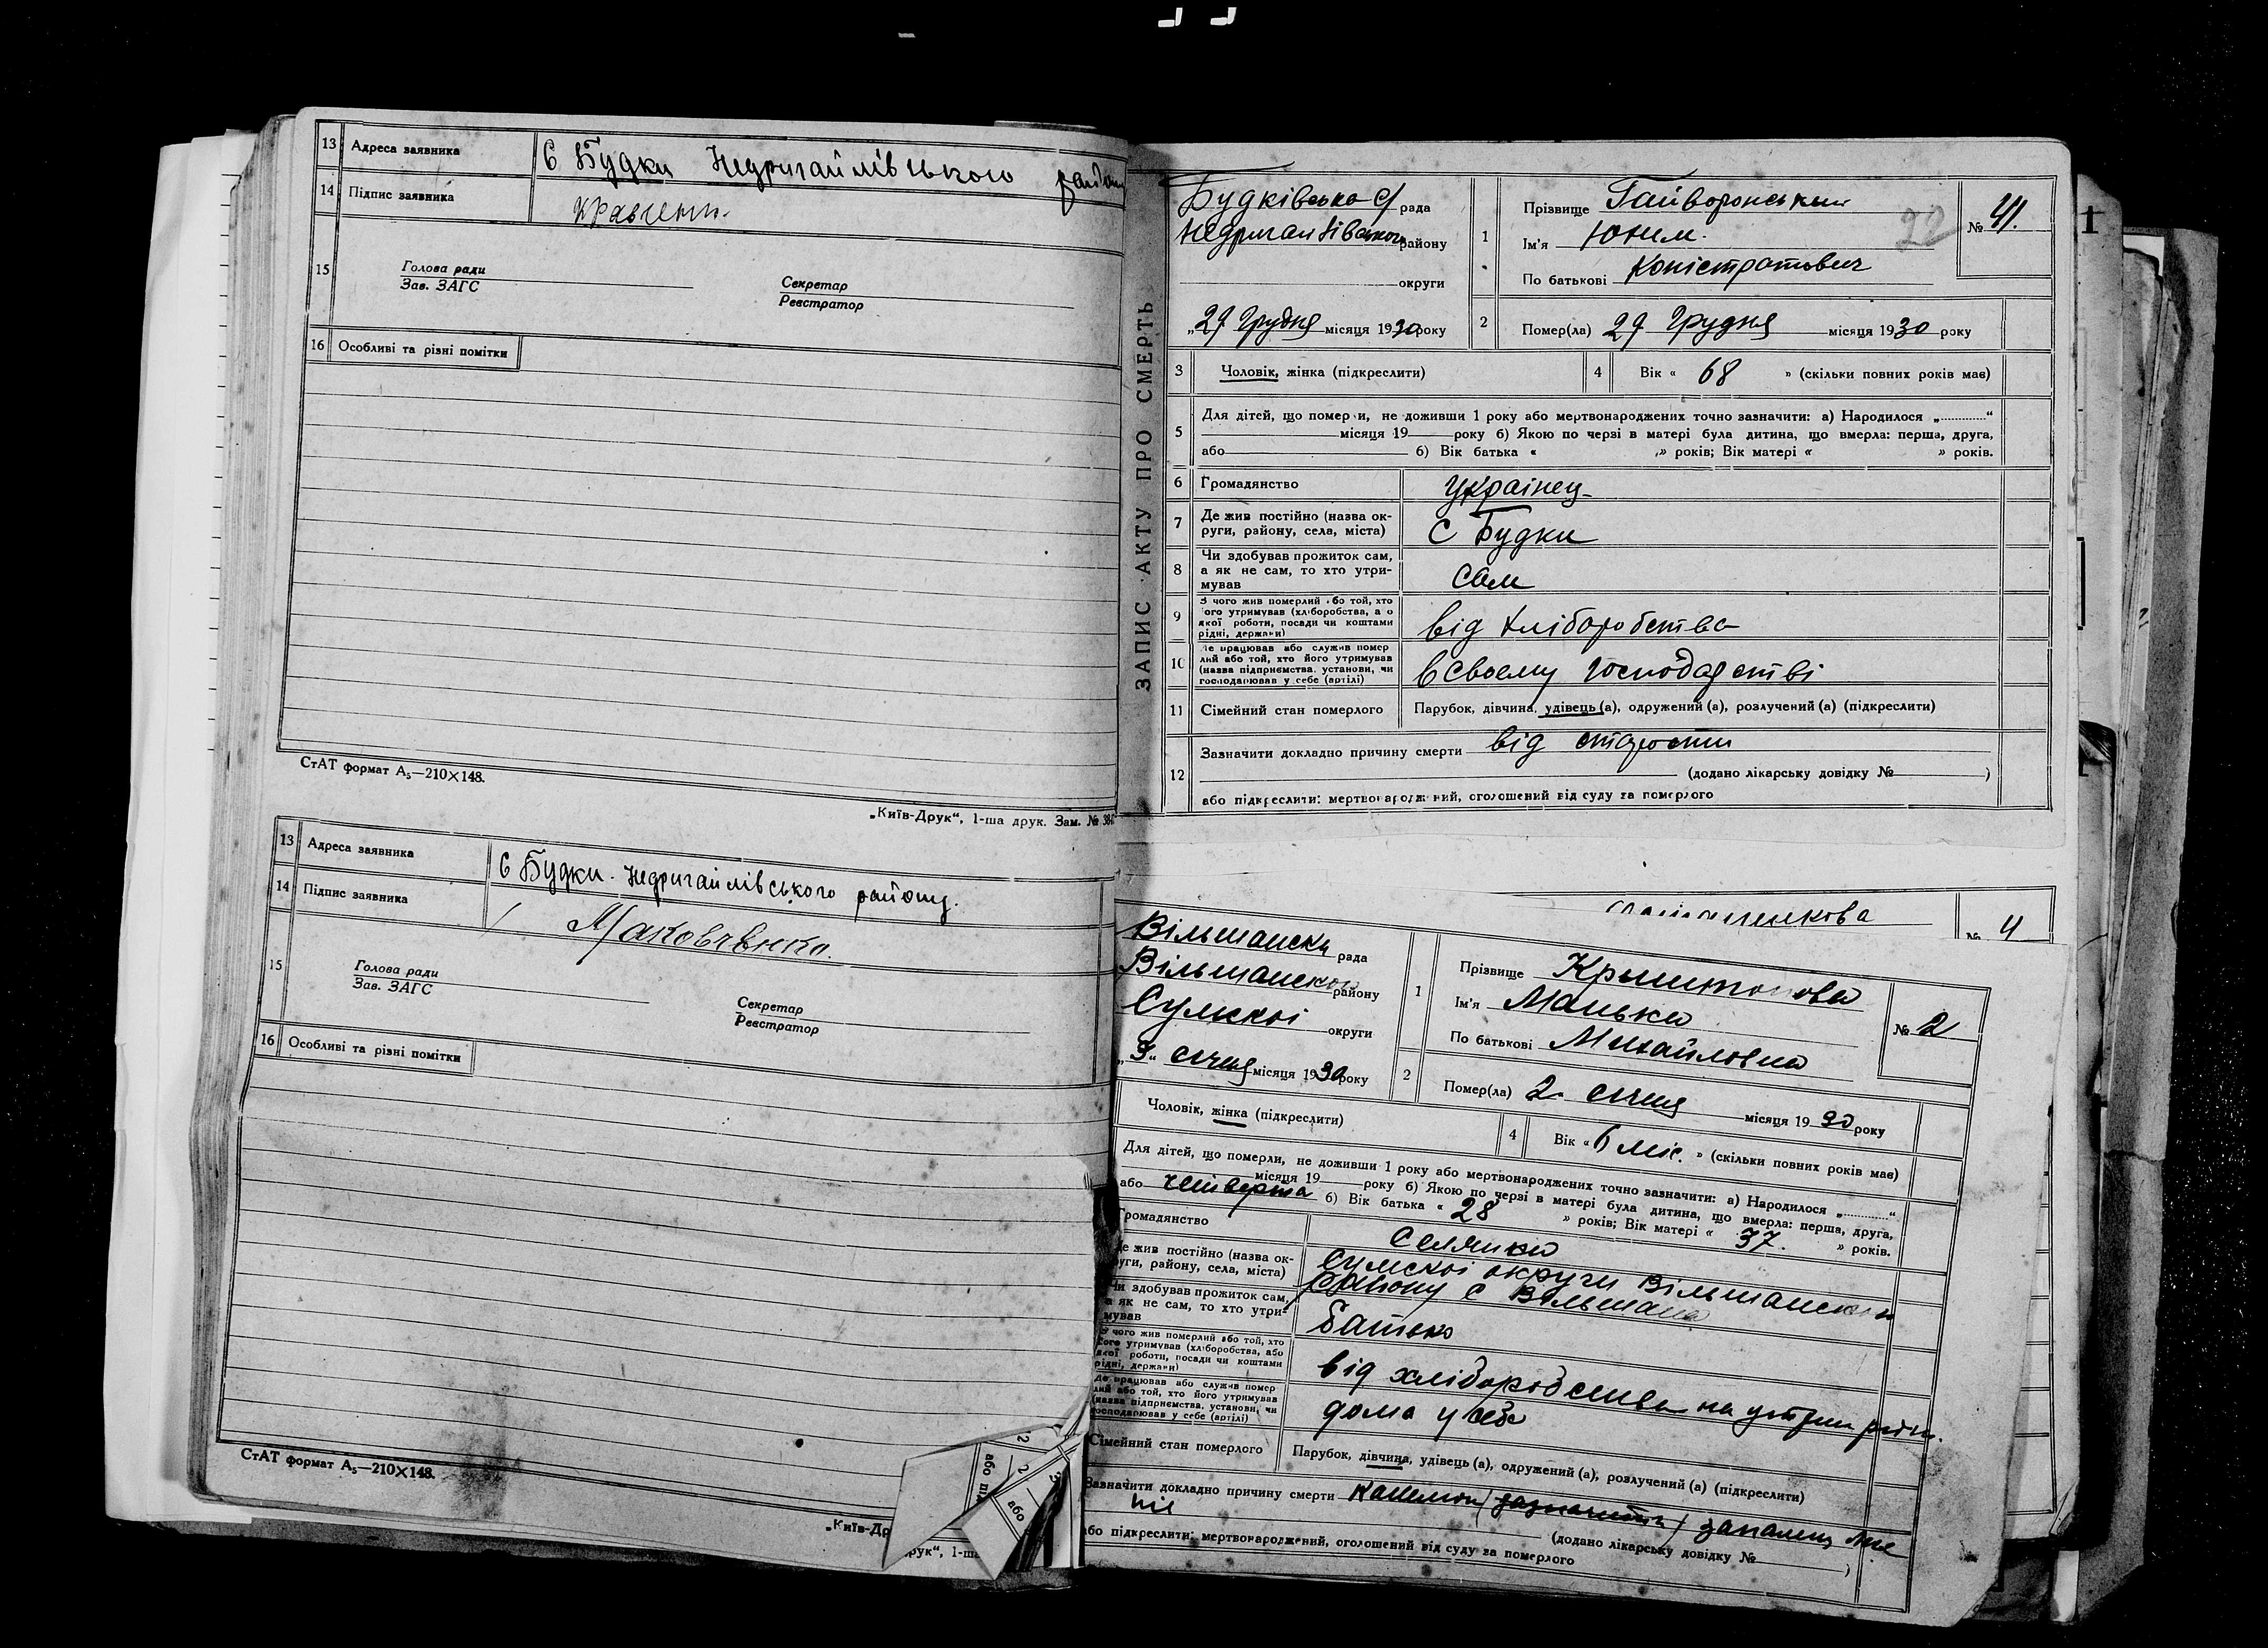 13 Адреса заявника С Будки Недригайлівського району
14 Підпис заявника Кравченко
15 Голова ради
Зав. ЗАГС
Секретар
Реєстратор
16 Особливі та різні помітки
СтАТ формат А₅—210×148.
„Київ-Друк“, 1-ша друк. Зам. №
13 Адреса заявника С Будки Недригайлівського району.
14 Підпис заявника Маковченко.
15 Голова ради
Зав. ЗАГС
Секретар
Реєстратор
16 Особливі та різні помітки
СтАТ формат А₅—210×148.
„Київ-Др
рук“, 1-ша
ЗАПИС АКТУ ПРО СМЕРТЬ
Будківська С/ рада
Недригайлівського району
округи
„29 Грудня місяця 1930 року
1 Прізвище Гайворонський
Ім’я Юхим.
По батькові Каністратович
22
№ 41.
2 Помер(ла) 29 Грудня місяця 1930 року
3 Чоловік, жінка (підкреслити)
4 Вік « 68 » (скільки повних років має)
5 Для дітей, що померли, не доживши 1 року або мертвонароджених точно зазначити: а) Народилося „ “
місяця 19 року б) Якою по черзі в матері була дитина, що вмерла: перша, друга,
або б) Вік батька « » років; Вік матері « » років.
6 Громадянство українец
7 Де жив постійно (назва ок-
руги, району, села, міста) С Будки
8 Чи здобував прожиток сам,
а як не сам, то хто утри-
мував сам
9 З чого жив померлий або той, хто
його утримував (хліборобства, або
якої роботи, посади чи коштами
рідні, держави) від хліборобства
10 Де працював або служив помер
лий або той, хто його утримував
(назва підприємства, установи, чи
господарював у себе (артілі) в своему господарстві
11 Сімейний стан померлого Парубок, дівчина, удівець (а), одружений (а), розлучений (а) (підкреслити)
12 Зазначити докладно причину смерти від старости
(додано лікарську довідку № )
або підкреслити: мертвонароджений, оголошений від суду за померлого
енкова
№ 4
Вільшанська рада
Вільшанського району
Сумскої округи
„3“ січня місяця 1930 року
1 Прізвище Крыштопова
Ім’я Манька
По батькові Михайловна
№ 2
2 Помер(ла) 2 січня місяця 1930 року
Чоловік, жінка (підкреслити)
4 Вік « 6 міс. » (скільки повних років має)
Для дітей, що померли, не доживши 1 року або мертвонароджених точно зазначити: а) Народилося „ “
місяця 19 року б) Якою по черзі в матері була дитина, що вмерла: перша, друга,
або четверта б) Вік батька « 28 » років; Вік матері « 37. » років.
Громадянство Селянка
Де жив постійно (назва ок-
руги, району, села, міста) Сумскої округи Вільшанского
району С Вільшана
Чи здобував прожиток сам,
а як не сам, то хто утри-
мував Батько
З чого жив померлий або той, хто
його утримував (хліборобства, або
якої роботи, посади чи коштами
рідні, держави) від хліборобства на утрим рідн.
Де працював або служив помер
лий або той, хто його утримував
(назва підприємства, установи, чи
господарював у себе (артілі) дома у себе
Сімейний стан померлого Парубок, дівчина, удівець (а), одружений (а), розлучений (а) (підкреслити)
Зазначити докладно причину смерти запалени лье
ніє
(додано лікарську довідку № )
або підкреслити: мертвонароджений, оголошений від суду за померлого